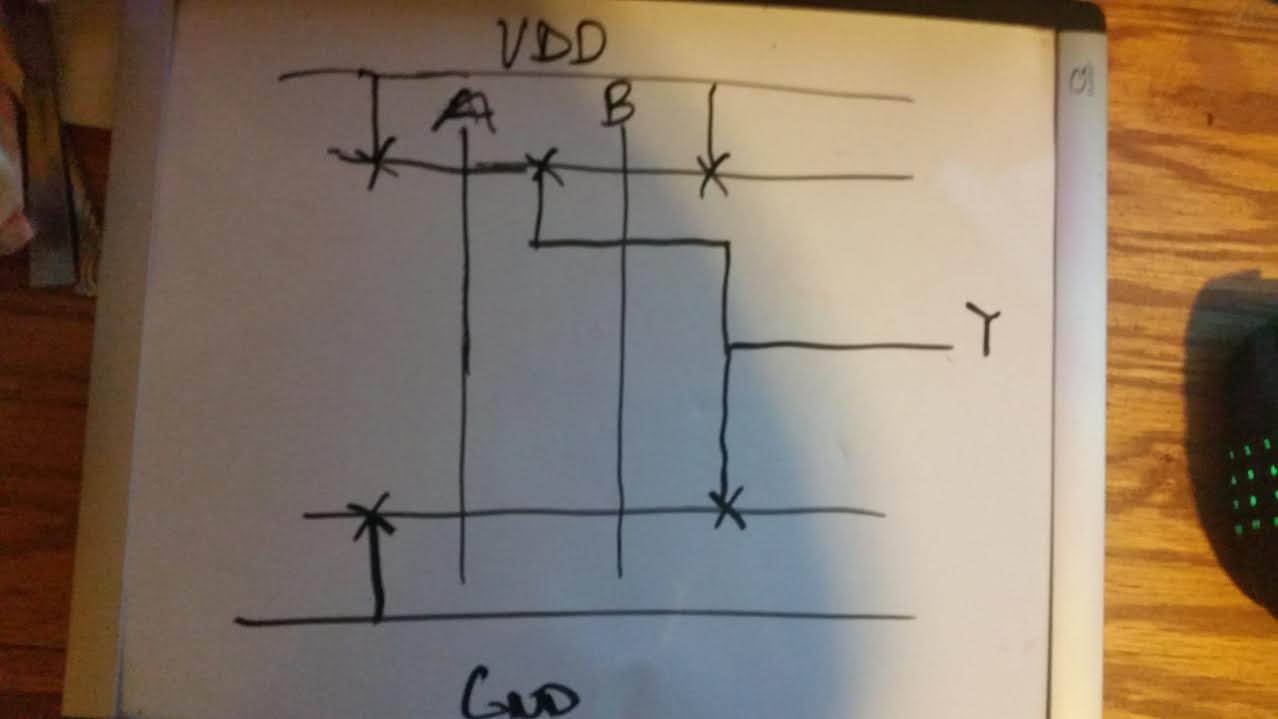 VDD
A B
Y
GND